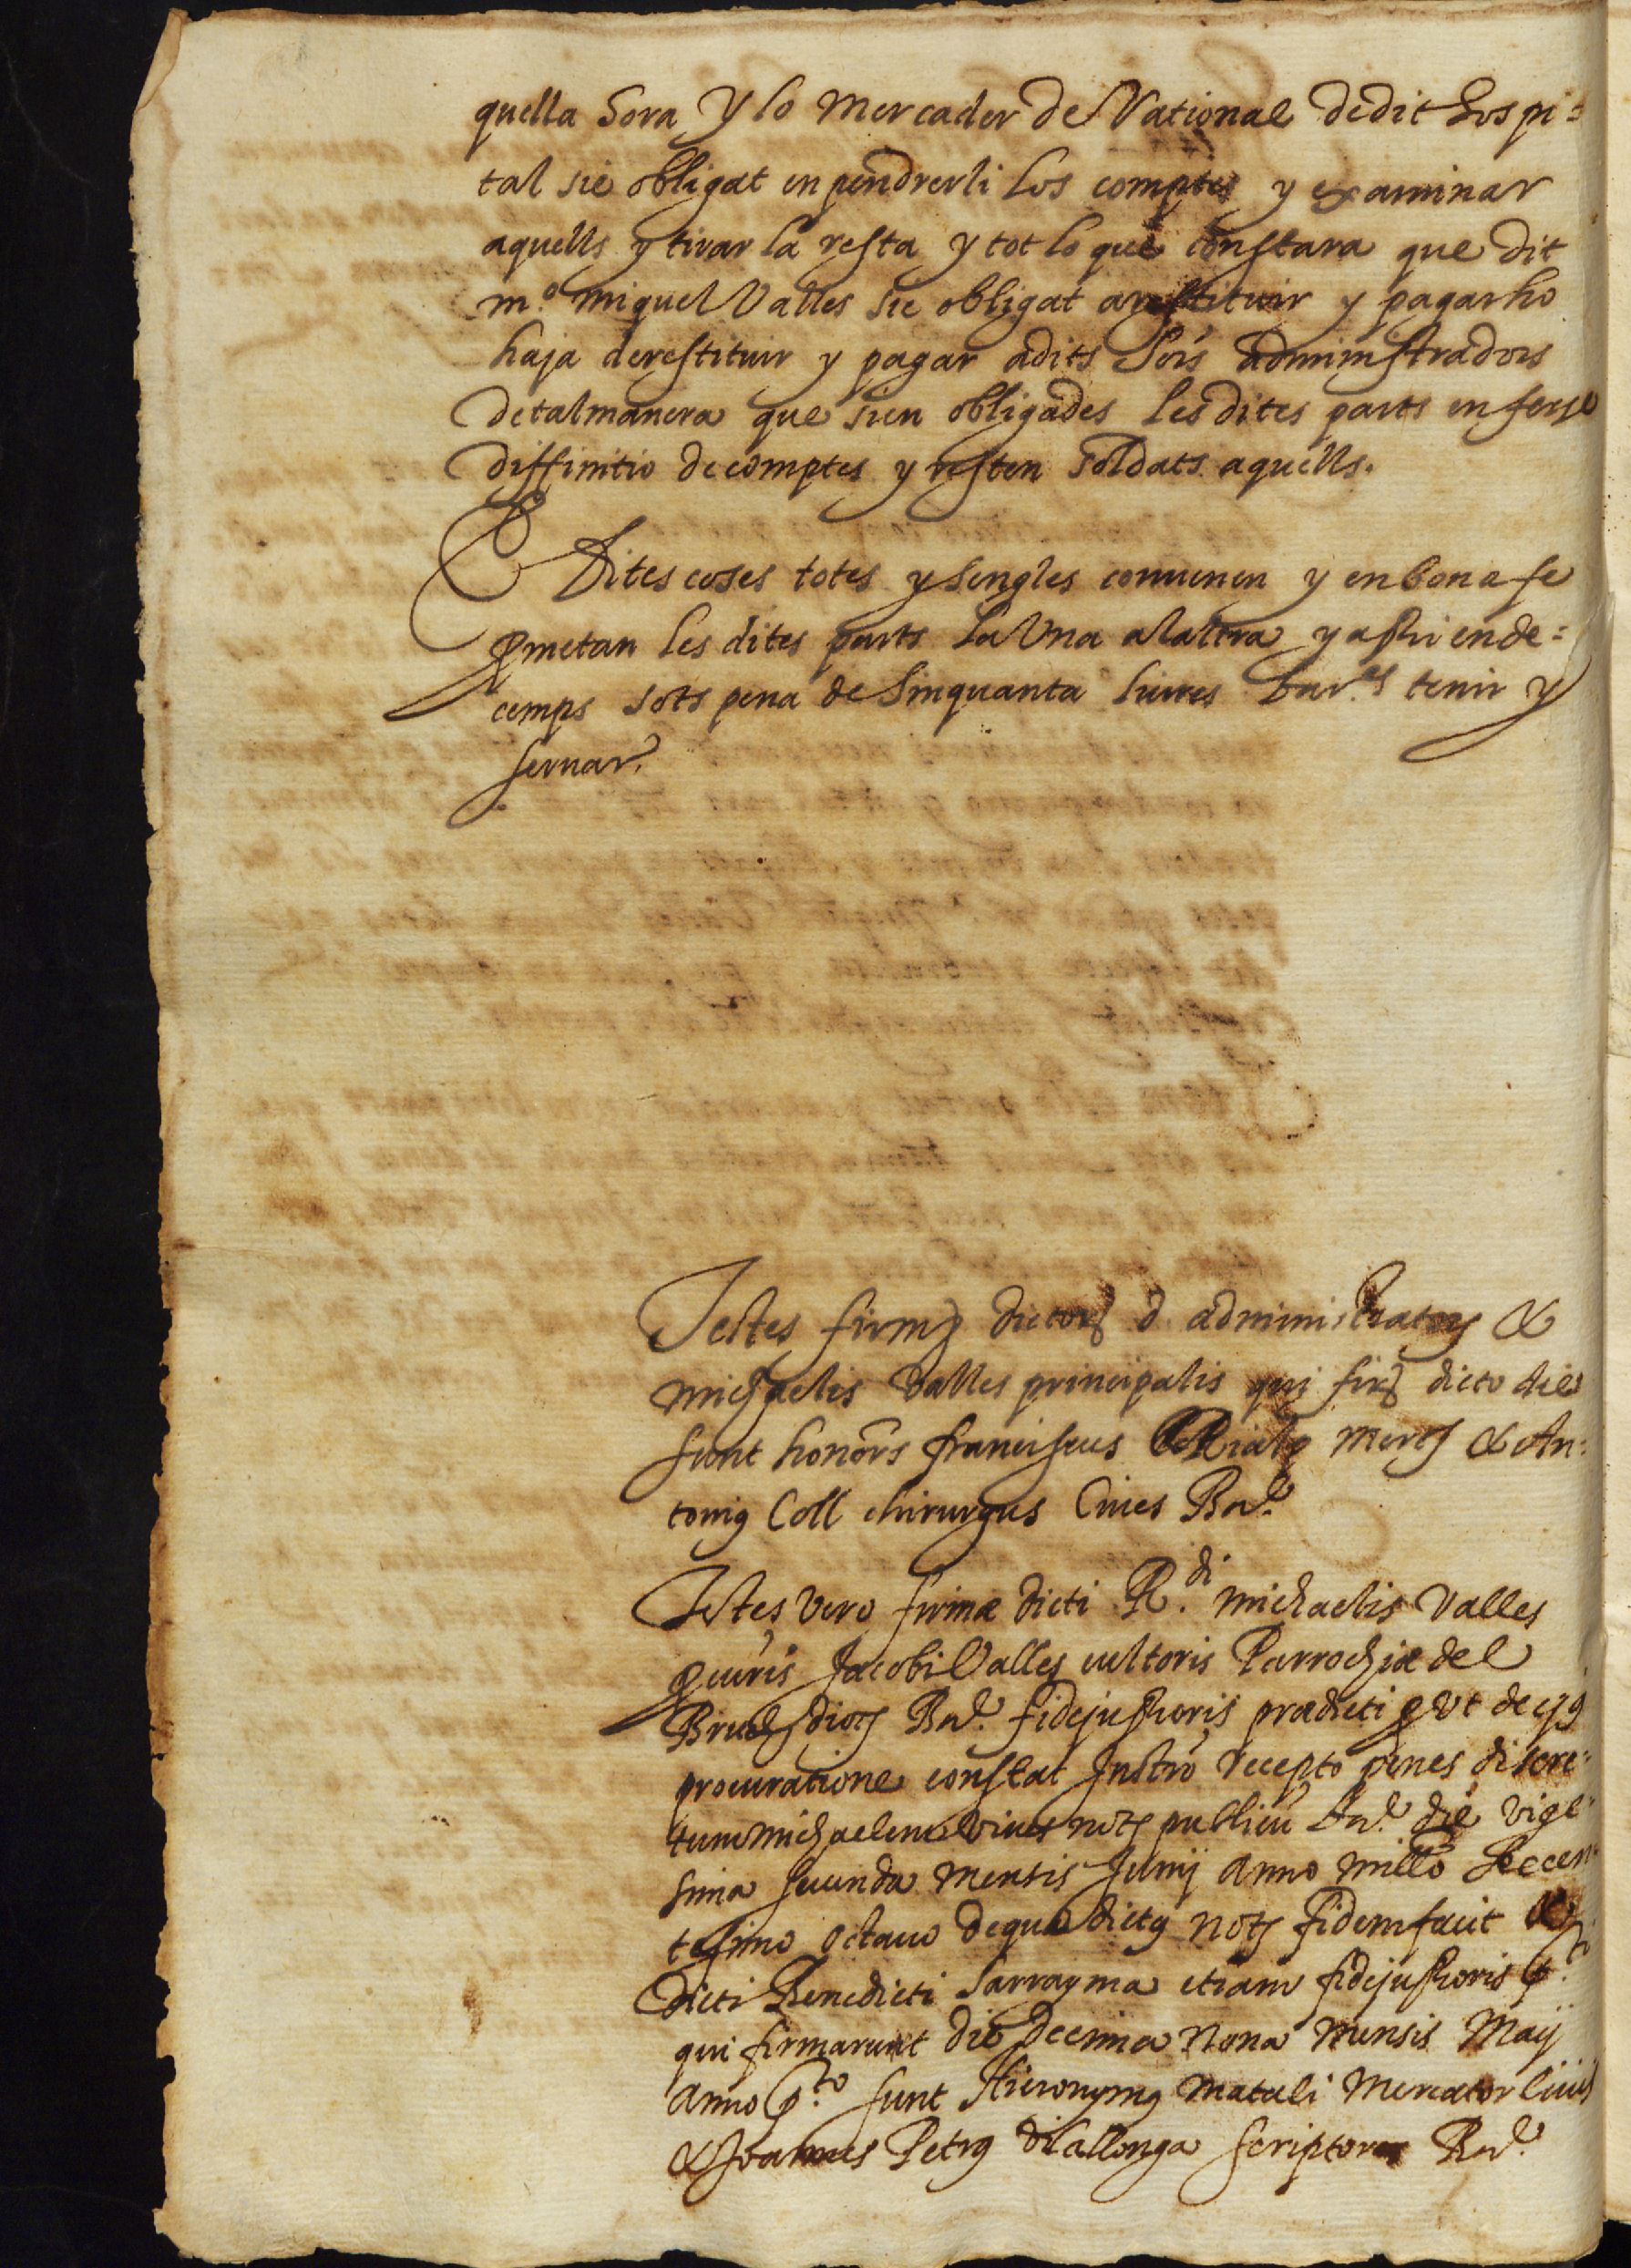 quella Sora y lo Mercader del Vational dedit hospi=
tal sie obligat en pendrerli los comptes y examinar
aquells y tirar la resta y tot lo que constara que dit
m.º miquel Valles sie obligat a restituir y pagar ho
haja de restituir y pagar a dits Sors administradors
de tal manera que sien obligades les dites parts en ferse
diffinitio de comptes y resten soldats aquells.
E Dites coses totes y sengles convenen y en bona fe
pmetan les dites parts la Una a laltra y axi ende=
cemps sots pena de Sinquanta liures bar.es tenir y
servar.
Testes firmę dictorų d administratorų &
michaelis Valles principalis qui firų dicto die
sunt honors franciscus Rialp merc & An=
toniꝰ Coll chirurgus Cives Bar.
Testes vero firmæ dicti R.di michaelis Valles
ꝓcuris Jacobi Valles cultoris Parrochiæ del
Bruch dioc Bar. fidejussoris prædicti ꝓut de ejꝰ
procuratione constat Instro recepto penes discre=
tum michaelem vives not publicu Bar. die vige=
sima secunda mensis Junij anno millo Sexcen=
tesimo octavo de qua dictꝰ not fidem facit &
dicti Benedicti Sarrayma etiam fidejussoris p.ti
qui firmarunt die decima Nona mensis Maij
anno p.to sunt Hieronymꝰ matali Mercator Civis
& Joannes Petrꝰ Vilallonga scriptor Bar.